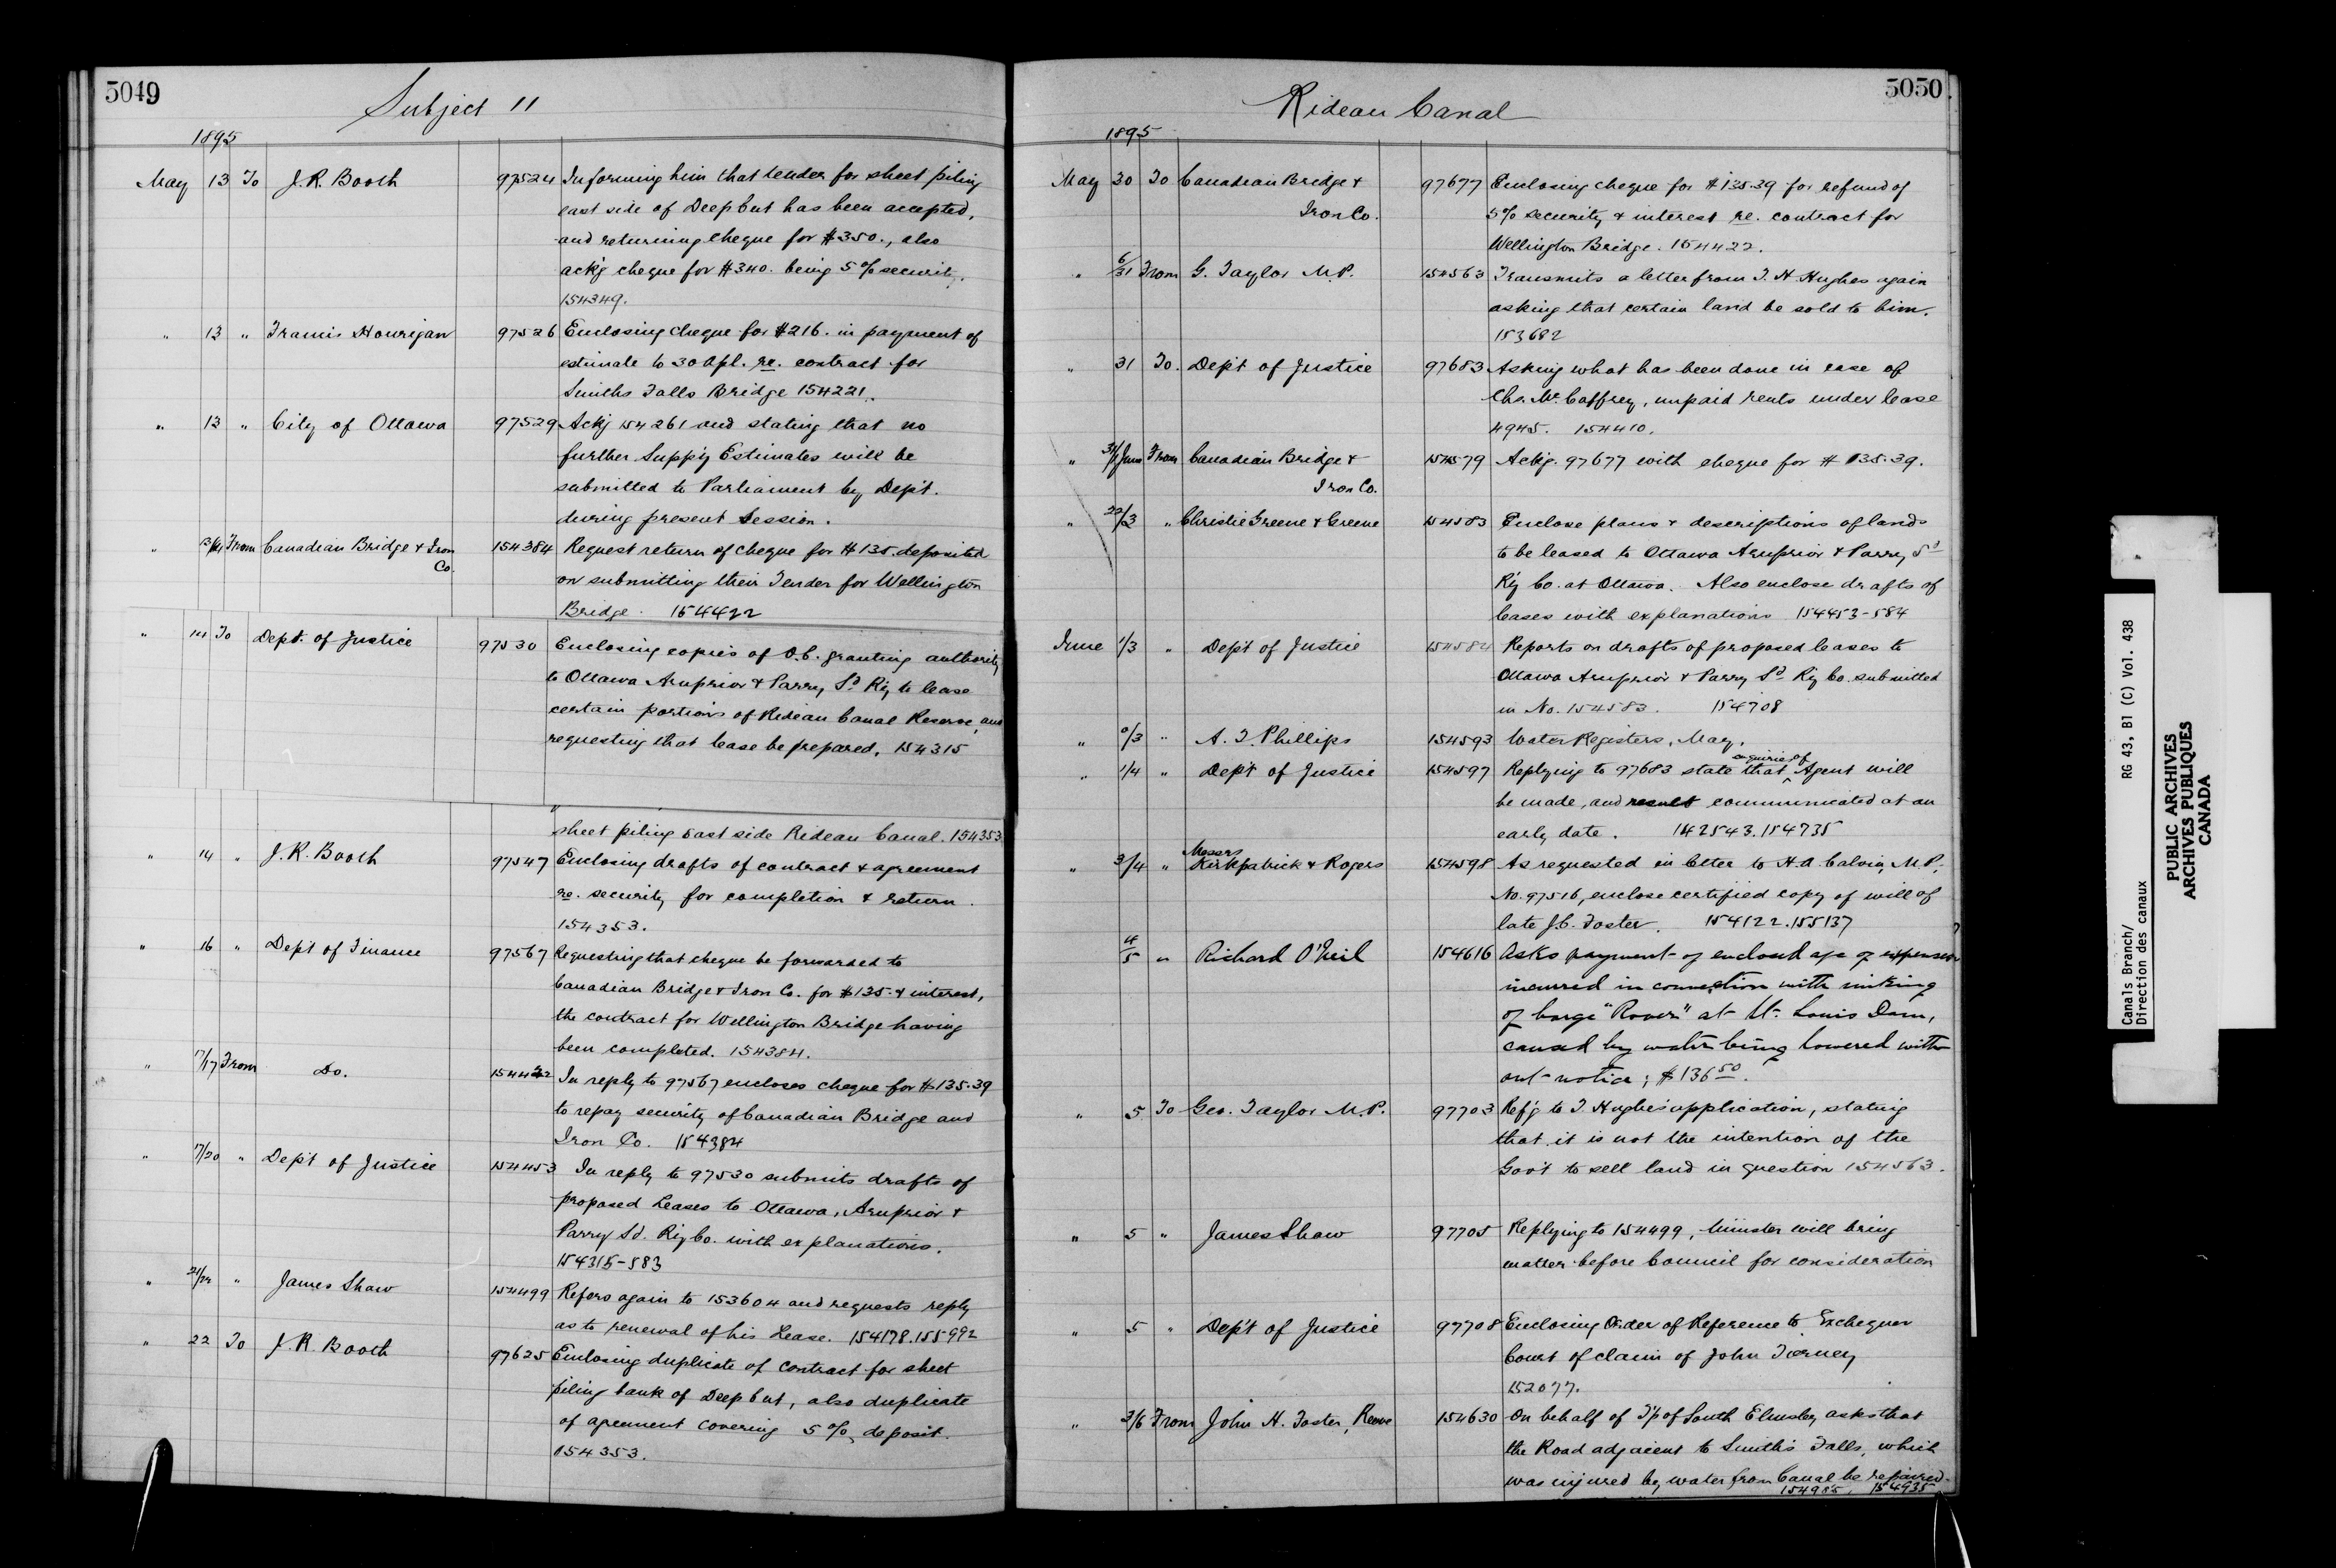 5049
Subject 11
1895
May 13 To J.R. Booth 97524 Informing him that tender for sheet piling
east side of Deep Cut has been accepted,
and returning cheque for $350., also
ack'g cheque for $340. being 5% security.
154349.
" 13 " Francis Hourigan 97526 Enclosing cheque for $216. in payment of
estimate to 30 Apl. re. contract for
Smiths Falls Bridge 154221.
" 13 " City of Ottawa 97529 Ackg 154261 and stating that no
further Supp'y Estimates will be
submitted to Parliament by Dep't.
during present Session.
" 13/14 From Canadian Bridge & Iron Co. 154384 Request return of cheque for $135. deposited
on submitting their Tender for Wellington
Bridge. 154422
" 14 To Dept. of Justice 97530 Enclosing copies of O.C. granting authority
to Ottawa Arnprior & Parry Sd Ry to lease
certain portions of Rideau Canal Reserve, and
requesting that lease be prepared, 154315
"
sheet piling East side Rideau Canal. 154353
" 14 " J.R. Booth 97547 Enclosing drafts of contract & agreement
re. security for completion & return.
154353.
" 16 " Dep't of Finance 97567 Requesting that cheque be forwarded to
Canadian Bridge & Iron Co. for $135. & interest,
the contract for Wellington Bridge having
been completed. 154384.
" 17/17 From Do. 154422 In reply to 97567 encloses cheque for $135.39
to repay security of Canadian Bridge and
Iron Co. 154384
" 17/20 " Dep't of Justice 154453 In reply to 97530 submits drafts of
proposed Leases to Ottawa, Arnprior &
Parry Sd. Ry Co. with explanations.
154315-583
" 21/22 " James Shaw 154499 Refers again to 153604 and requests reply
as to renewal of his Lease. 154178.155992
" 22 To J.R. Booth 97625 Enclosing duplicate of contract for sheet
piling bank of Deep Cut, also duplicate
of agreement covering 5% deposit.
154353.
5050
Rideau Canal
1895
May 30 To Canadian Bridge & 97677 Enclosing cheque for $135.39 for refund of
Iron Co. 5% security & interest re. contract for
Wellington Bridge. 154422.
" 6/31 From G. Taylor M.P. 154563 Transmits a letter from T. H. Hughes again
asking that certain land be sold to him.
153682
" 31 To. Dep't of Justice 97683 Asking what has been done in case of
Chs. Mc Caffrey, unpaid rents under lease
4945. 154410.
" 31/1 June From Canadian Bridge & 154579 Ackg. 97677 with cheque for $135.39.
Iron Co.
" 22/3 " Christie Greene & Greene 154583 Enclose plans & descriptions of lands
to be leased to Ottawa Arnprior & Parry Sd
Ry Co. at Ottawa. Also enclose drafts of
leases with explanations 154453-584
June 1/3 " Dep't of Justice 154584 Reports on drafts of proposed leases to
Ottawa Arnprior & Parry Sd Ry Co. submitted
in No. 154583. 154708
" 0/3 " A. T. Phillips 154593 Water Registers, May.
" 1/4 " Dep't of Justice 154597 Replying to 97683 state that enquiries of Agent will
be made, and result communicated at an
early date. 142543.154735
" 3/4 " Messrs Kirkpatrick & Rogers 154598 As requested in letter to H.A. Calvin, M.P.,
No. 97516, enclose certified copy of will of
late J.C. Foster. 154122.155137
4/5 " Richard O'Neil 154616 Asks payment of enclosed a/c of expenses
incurred in connection with sinking
of barge "Rover" at St. Louis Dam,
caused by water being lowered with-
out notice; $136 50.
" 5 To Geo. Taylor M.P. 97703 Ref'g to T. Hughes' application, stating
that it is not the intention of the
Gov't to sell land in question 154563.
" 5 " James Shaw 97705 Replying to 154499, Minister will bring
matter before Council for consideration
" 5 " Dep't of Justice 97708 Enclosing Order of Reference to Exchequer
Court of claim of John Tierney
152077.
" 3/6 From John H. Foster, Reeve 154630 On behalf of T'p of South Elmsley asks that
the Road adjacent to Smith's Falls, which
was injured by water from Canal be repaired.
154985, 154935
Canals Branch/ RG 43, B1 (C) Vol. 438
Direction des canaux
PUBLIC ARCHIVES
ARCHIVES PUBLIQUES
CANADA